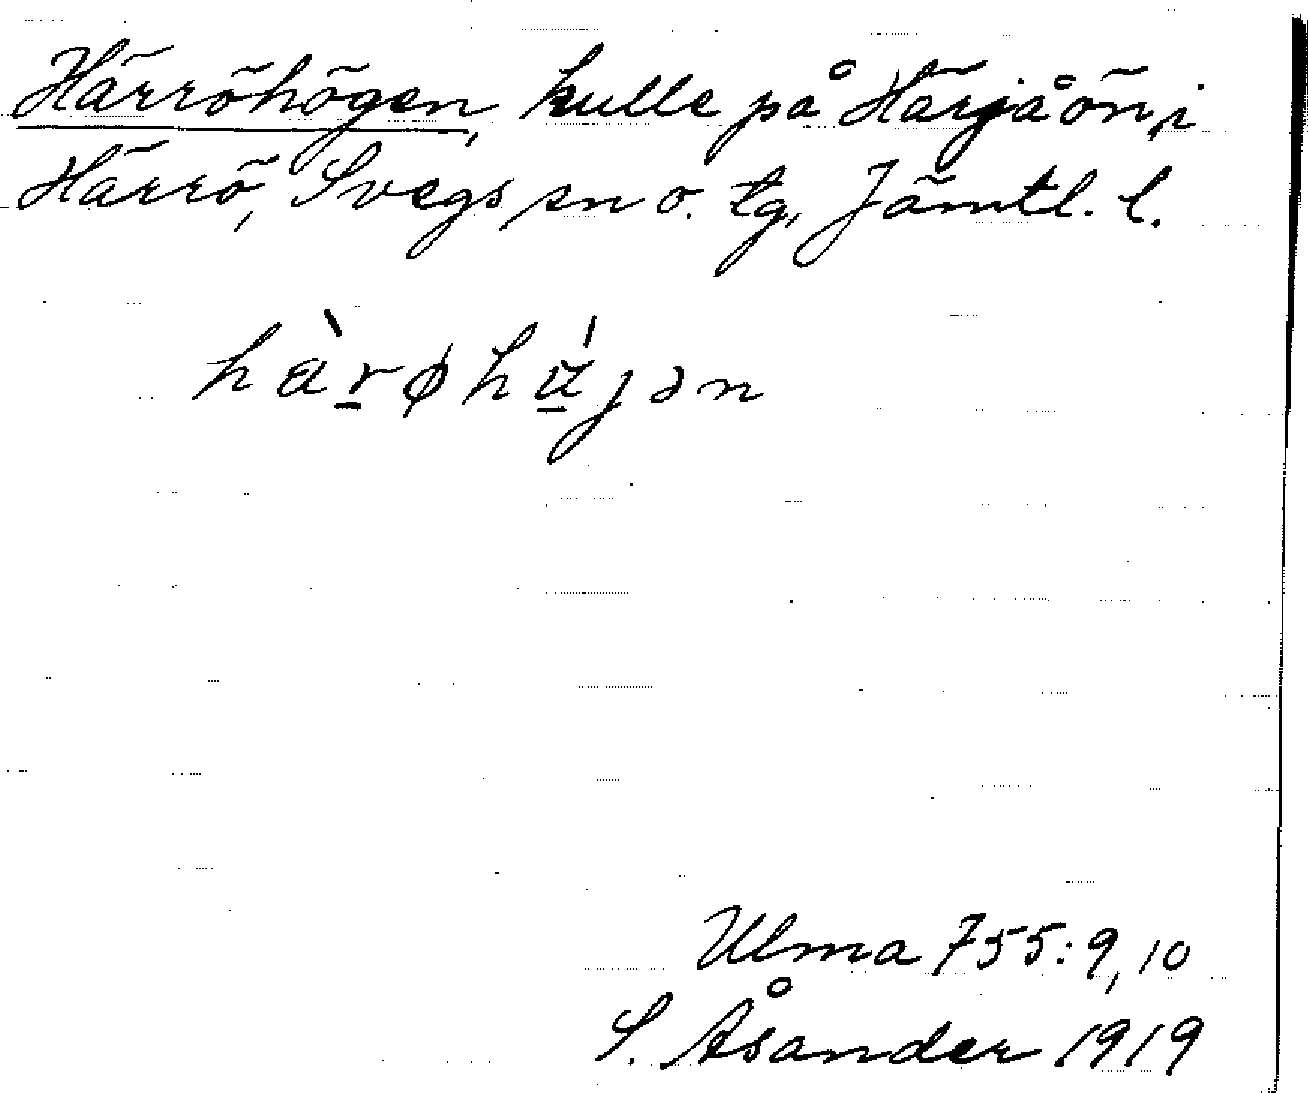 Härröhögen, kulle på Härjåön, i
Härrö, Svegs sn o. tg, Jämtl. l.
hàr̲øhά̲jən
Ulma 755:9,10
S. Åsander 1919